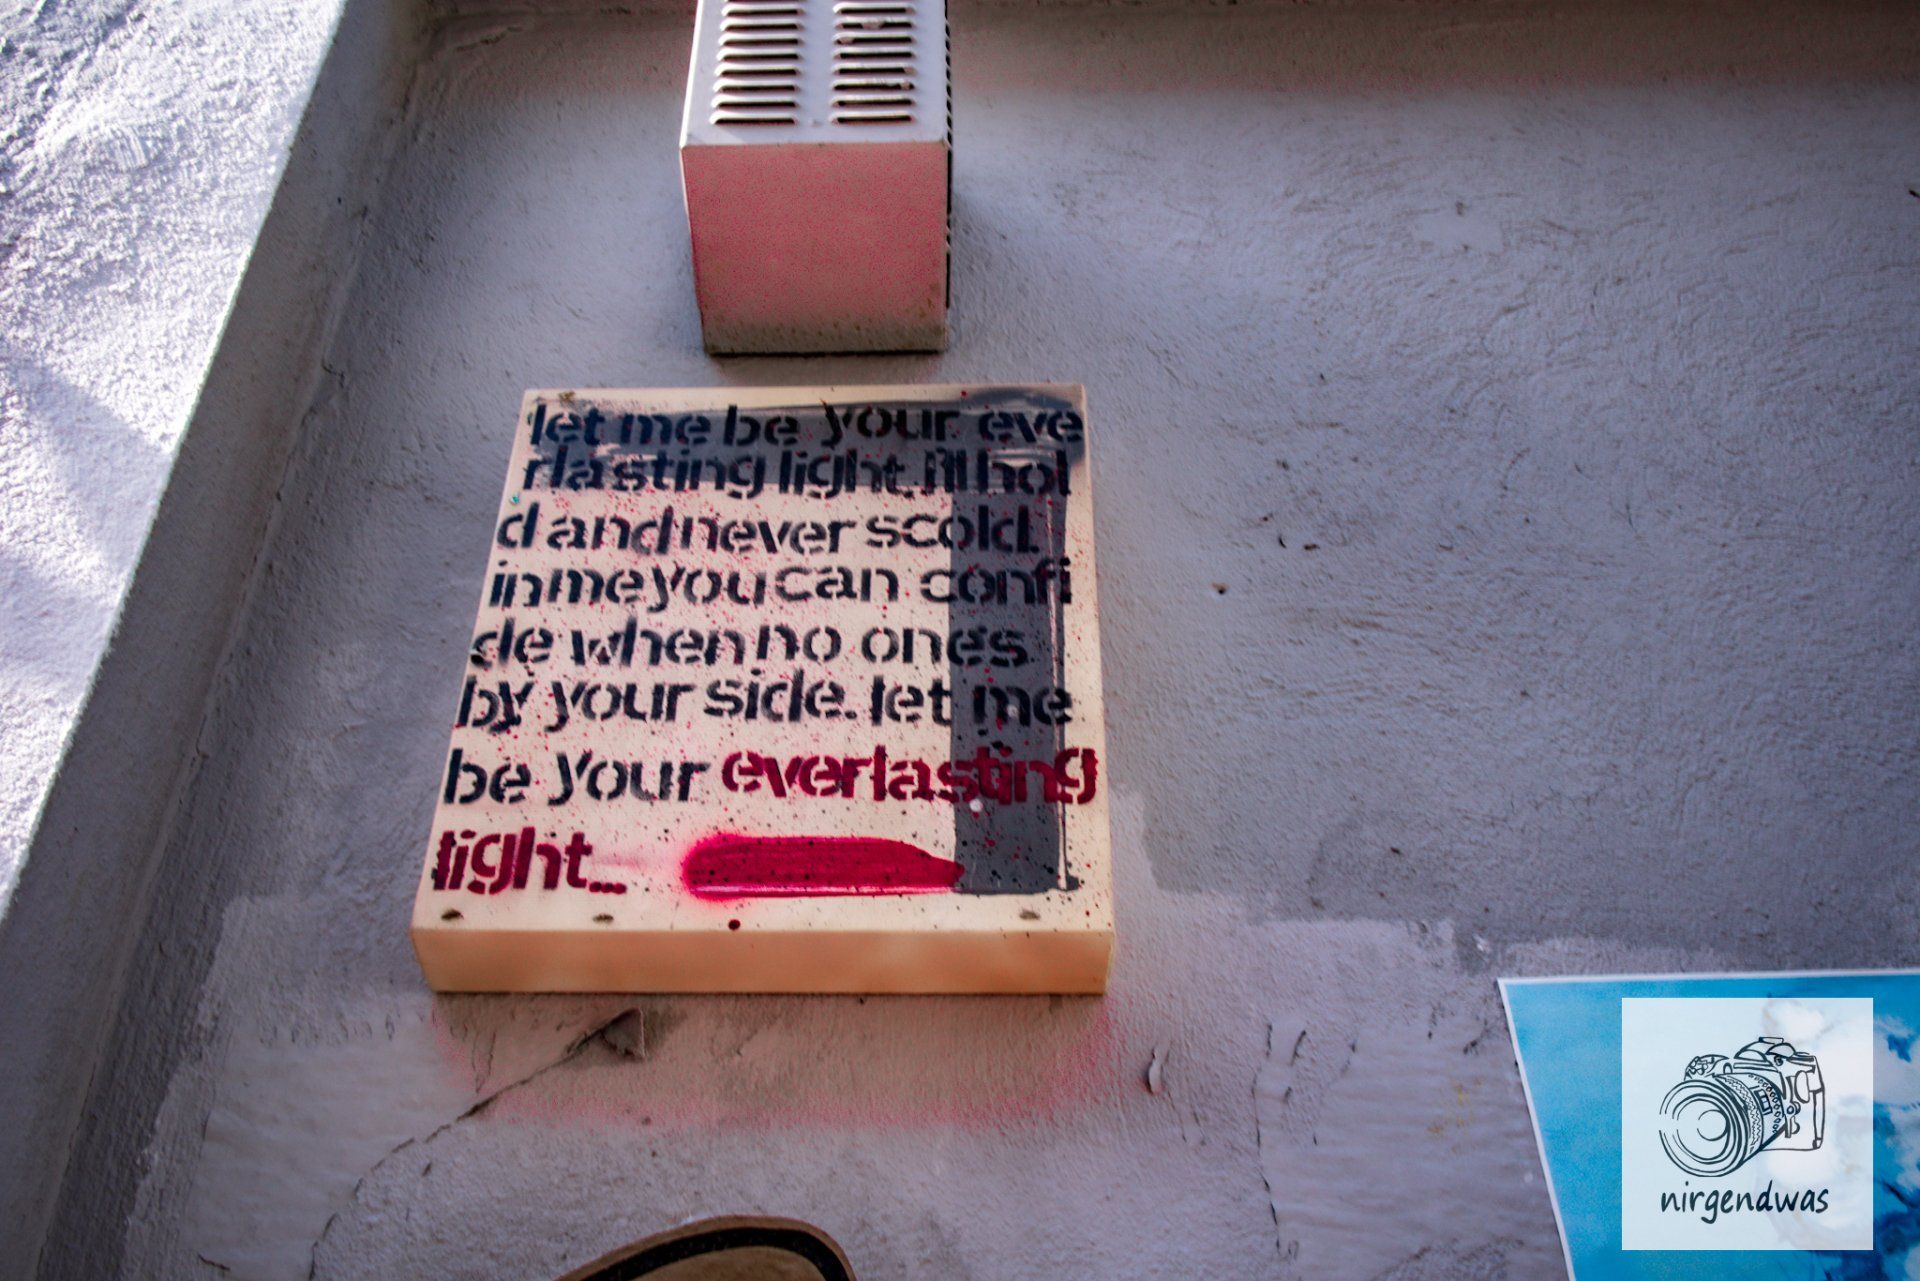 let me be your eve
rlasting light. i'll hol
d and never scold.
in me you can confi
de when no ones
by your side. let me
be your everlasting
light...
nirgendwas